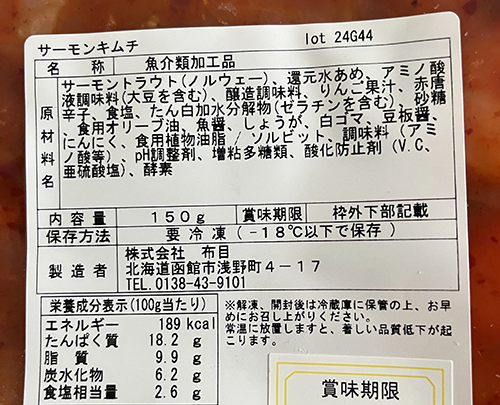 サーモンキムチ lot 24G44
名称 魚介類加工品
原材料名 サーモントラウト(ノルウェー)、還元水あめ、アミノ酸
液調味料(大豆を含む)、醸造調味料、りんご果汁、赤唐
辛子、食塩、たん白加水分解物(ゼラチンを含む)、砂糖
、食用オリーブ油、魚醤、しょうが、白ゴマ、豆板醤、
にんにく、食用植物油脂 / ソルビット、調味料(アミ
ノ酸等)、pH調整剤、増粘多糖類、酸化防止剤(V.C、
亜硫酸塩)、酵素
内容量 150g 賞味期限 枠外下部記載
保存方法 要冷凍(-18℃以下で保存)
製造者 株式会社 布目
北海道函館市浅野町4-17
TEL.0138-43-9101
栄養成分表示(100g当たり)
エネルギー 189 kcal
たんぱく質 18.2 g
脂質 9.9 g
炭水化物 6.2 g
食塩相当量 2.6 g
※解凍、開封後は冷蔵庫に保管の上、お早
めにお召し上がりください。
常温に放置しますと、著しい品質低下が起
こります。
賞味期限